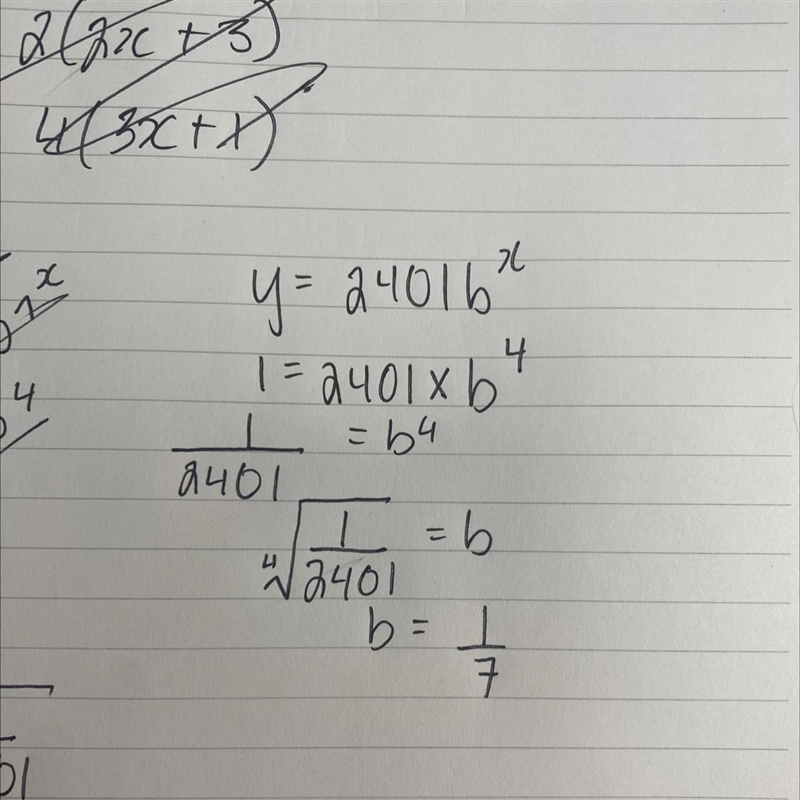 2(2x + 3)
4(3x + 1)
x
4
y = 2401b^x
1 = 2401 × b^4
1/2401 = b^4
∜(1/2401) = b
b = 1/7
01